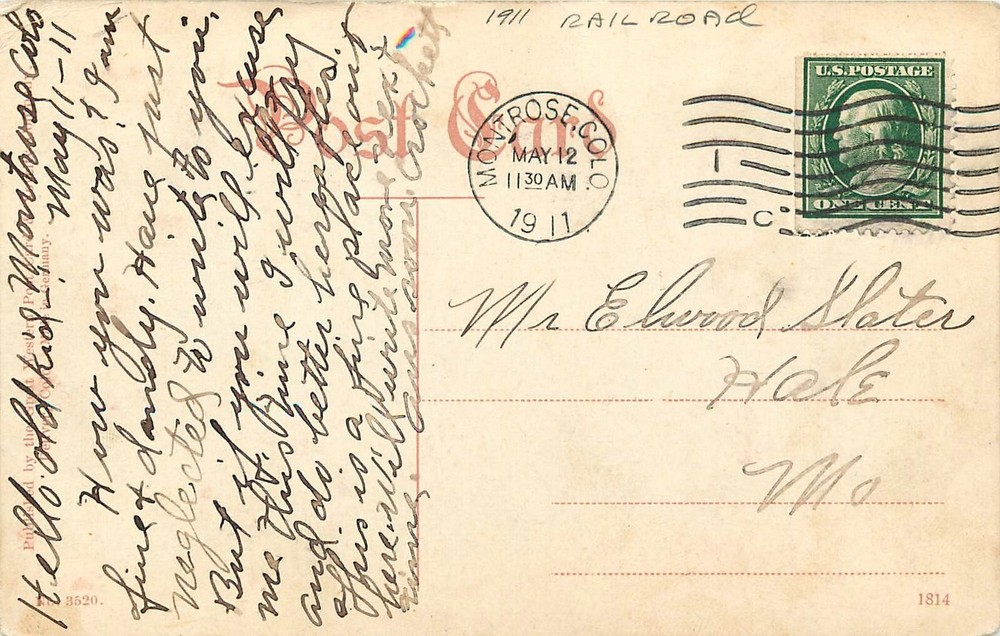 1911 RAIL ROAD
Post Card
MONTROSE, COLO.
MAY 12
11 30 AM
1911
U.S. POSTAGE
ONE CENT
1
C
Mr Elwood Slater
Hale
Mo
1814
No. 3520.
Published by the Great Western Post
Germany.
Hello old kid. Montrose Colo
May 11-11
How you was? I am
fine & dandy. Have just
neglected to write to you,
But if you will excuse
me this time I will try
and do better hereafter.
This is a fine place out
here. Will write more next
time.